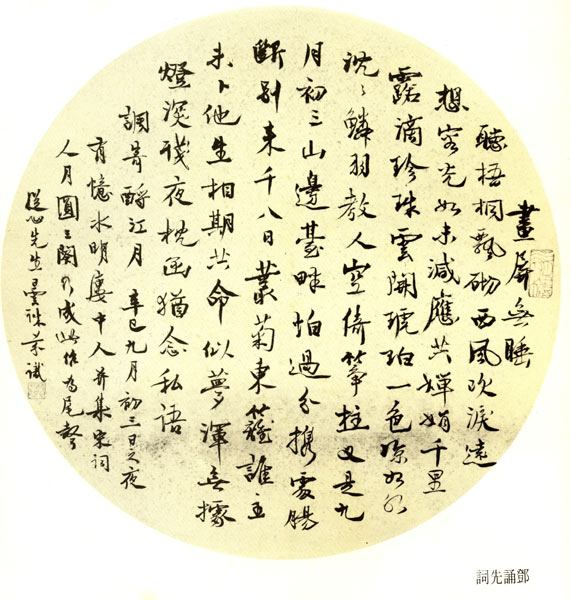 畫屏無睡
聽梧桐飄砌西風吹淚遠
想容光如未減應共嬋娟千里
露滴珍珠雲開琥珀一色涼如水
沈々鱗羽教人空倚箏柱又是九
月初三山邊臺畔怕過分攜處腸
斷別來千八日叢菊東籬誰主
未卜他生相期共命似夢渾無據
燈深殘夜枕函猶念私語
調寄酹江月 辛巳九月初三日之夜
有憶水明樓中人并集宋詞
人月圓三闋乃成此作為尾聲
先生
鄧誦先詞